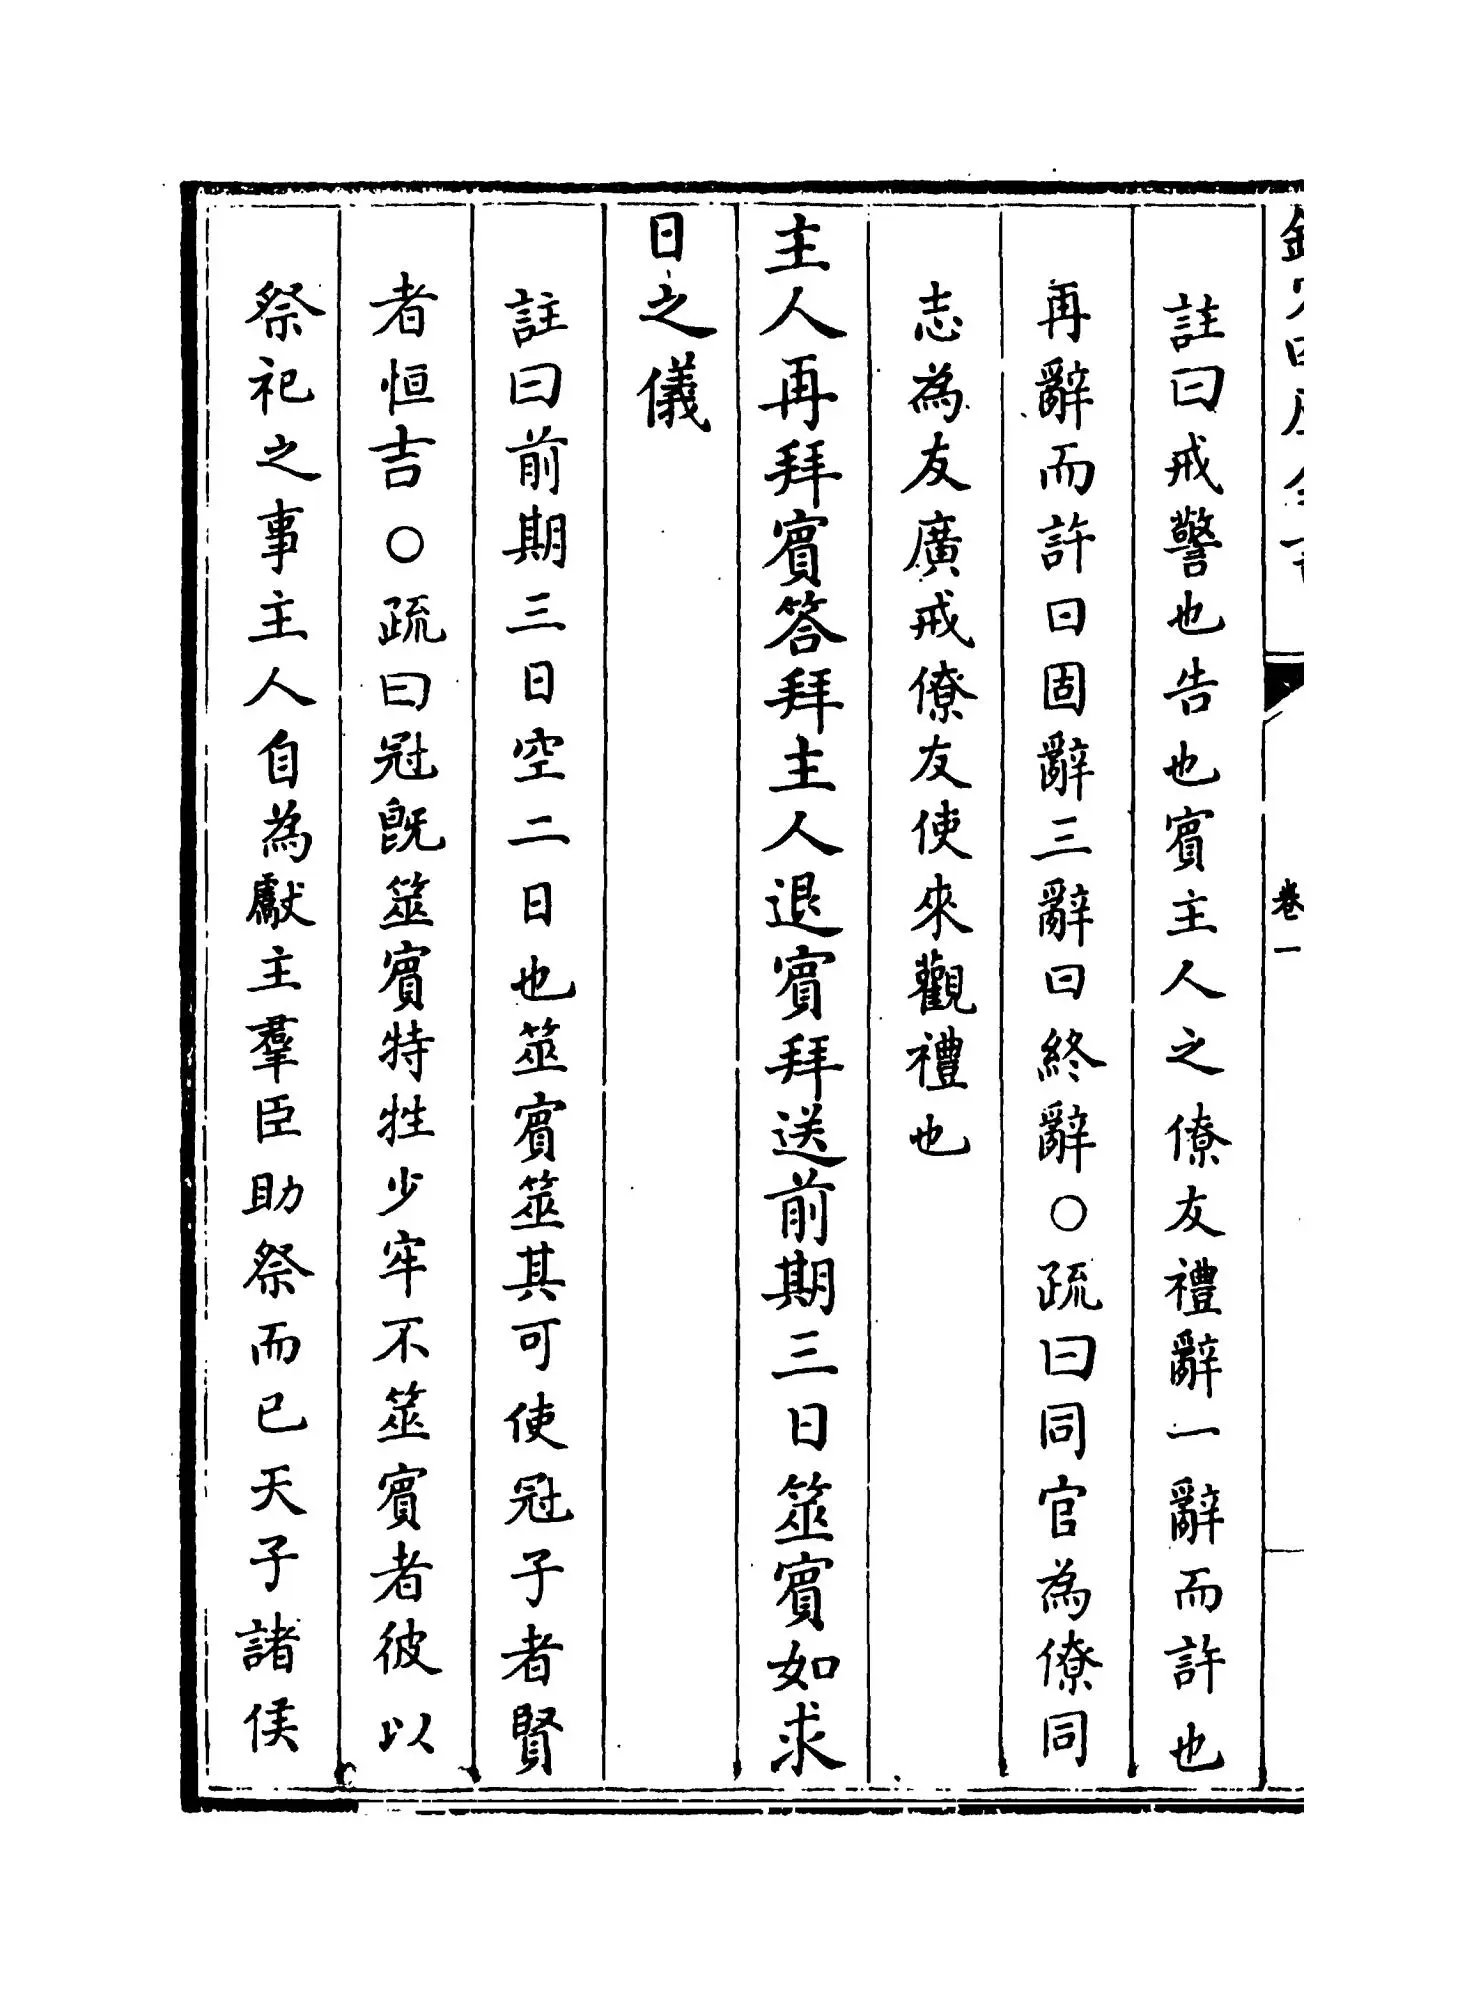 註曰戒警也告也賓主人之僚友禮辭一辭而許也
再辭而許曰固辭三辭曰終辭○疏曰同官為僚同
志為友廣戒僚友使來觀禮也
主人再拜賓答拜主人退賓拜送前期三日筮賓如求
日之儀
註曰前期三日空二日也筮賓筮其可使冠子者賢
者恒吉○疏曰冠既筮賓特牲少牢不筮賓者彼以
祭祀之事主人自為獻主羣臣助祭而已天子諸侯
卷一